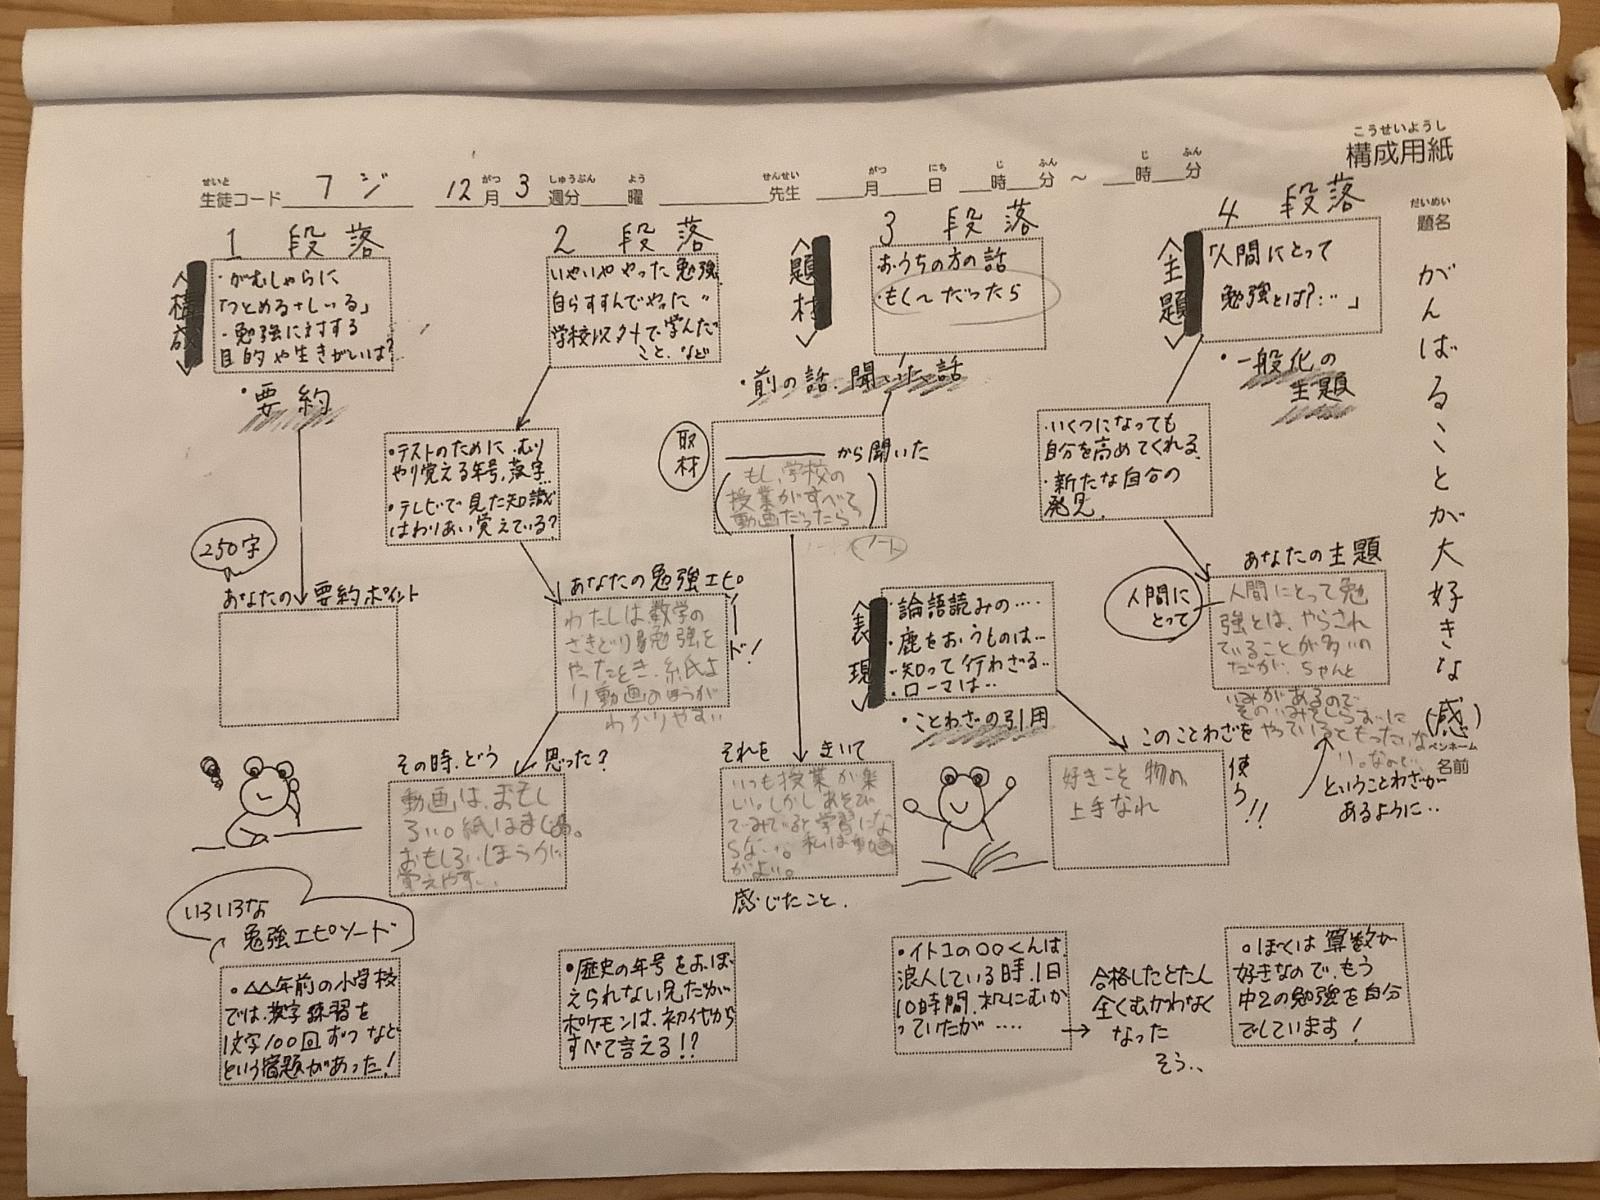 こうせいようし
構成用紙
せいと
生徒コード 7 ジ
12 がつ 月 3 しゅうぶん 週分 よう 曜
せんせい 先生 がつ 月 にち 日 じ 時 ふん 分 ～ じ 時 ふん 分
だいめい
題名
がんばることが大好きな(感)
ペンネーム
名前
1 段落
<構成>
・がむしゃらに
「つとめる+しいる」
・勉強に対する
目的や生きがいは?
・要約
250字
あなたの要約ポイント
2 段落
いやいややった勉強
自らすすんでやった〃
学校以外で学んだ
こと、など
・テストのために、むり
やり覚える年号、漢字…
・テレビで見た知識
はわりあい覚えている?
あなたの勉強エピソード!
わたしは数学の
さきどり勉強を
やったとき、紙よ
り動画のほうが
わかりやすい
その時、どう思った?
動画は、おもし
ろい。紙はまじめ。
おもしろいほうが
覚えやすい。
3 段落
<題材>
おうちの方の話
・もし〜だったら
・前の話、聞いた話
取材
から聞いた
(もし、学校の
授業がすべて
動画だったら)
ノート
それを きいて
いつも授業が楽し
い。しかしあそび
でみていると学習にな
らない。私は動画
がよい。
感じたこと.
<表現>
・論語読みの‥‥
・鹿をおうものは‥
・知って行わざる‥
・ローマは‥
・ことわざの引用
このことわざを使う!!
好きこそ物の
上手なれ
4 段落
<主題>
「人間にとって
勉強とは?…」
・一般化の
主題
・いくつになっても
自分を高めてくれる。
・新たな自分の
発見。
あなたの主題
人間に
とって
人間にとって勉
強とは、やらされ
ていることが多いの
だが、ちゃんと
いみがあるので
そのいみをしらずに
やっているともったいな
い。なので‥
ということわざが
あるように‥
いろいろな
勉強エピソード
・△△年前の小学校
では、漢字練習を
1文字100回ずつなど
という宿題があった!
・歴史の年号をおぼ
えられない兄だが
ポケモンは、初代から
すべて言える!?
・イトコの〇〇くんは、
浪人している時、1日
10時間、机にむか
っていたが ‥‥
→ 合格したとたん
全くむかわなく
なった
そう‥
・ぼくは算数が
好きなので、もう
中2の勉強を自分
でしています!